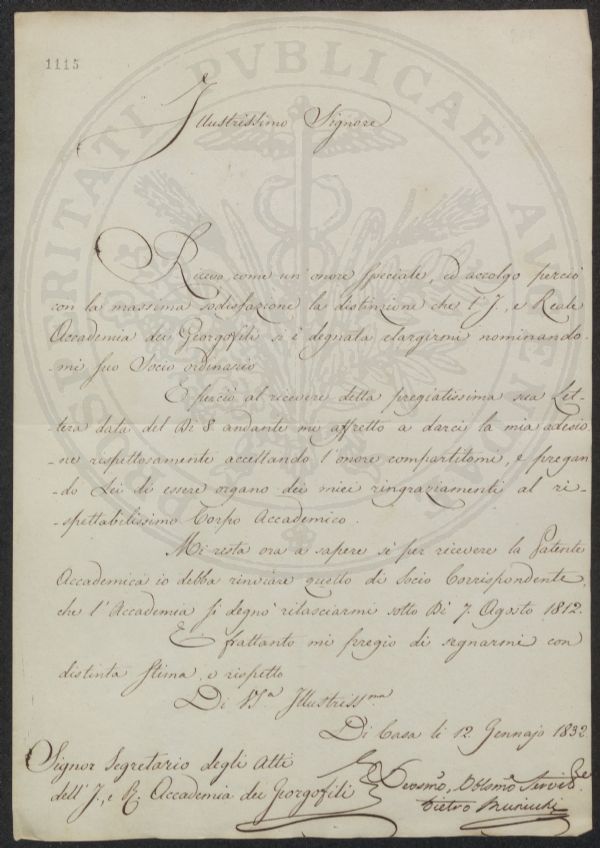 1115
Illustrissimo Signore
Ricevo come un'onore speciale, ed accolgo perciò
con la massima sodisfazione la distinzione che l'I., e Reale
Accademia dei Georgofili si è degnata elargirmi nominando-
-mi suo Socio ordinario
E perciò al ricevere della pregiatissima sua Let-
-tera data del Dì 8. andante mi affretto a darci la mia adesio
-ne rispettosamente accettando l'onore compartitomi, e pregan
-do Lei di essere organo dei miei ringraziamenti al ri-
-spettabilissimo Corpo Accademico.
Mi resta ora a sapere se per ricevere la Patente
Accademica io debba rinviare quello di Socio Corrispondente,
che l'Accademia si degnò rilasciarmi sotto Dì 7. Agosto 1812.
E frattanto mi pregio di segnarmi con
distinta stima, e rispetto
Di VSa Illustressma
Di Casa li 12. Gennajo 1832
Signor Segretario degli Atti
dell'I., e R. Accademia dei Georgofili
Devosmo, Obbsmo Servidre
Pietro
PROSPERITATI PVBLICAE AVGENDAE